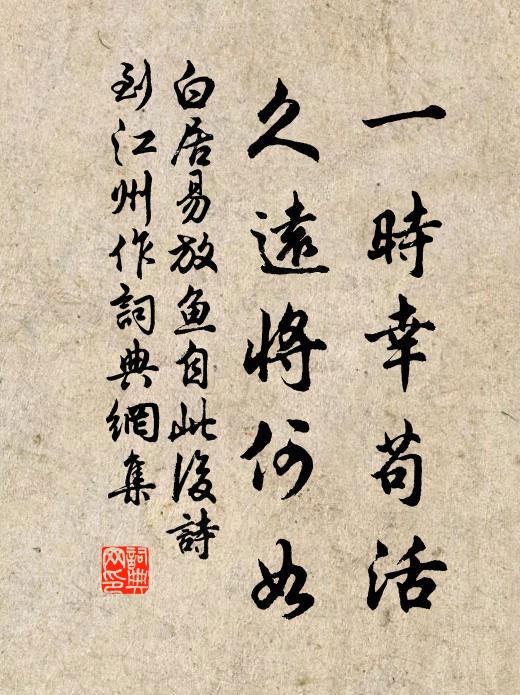 一時幸苟活
久遠將何如
白居易放魚自此後詩
到江州作詞典網集
詞典
网印